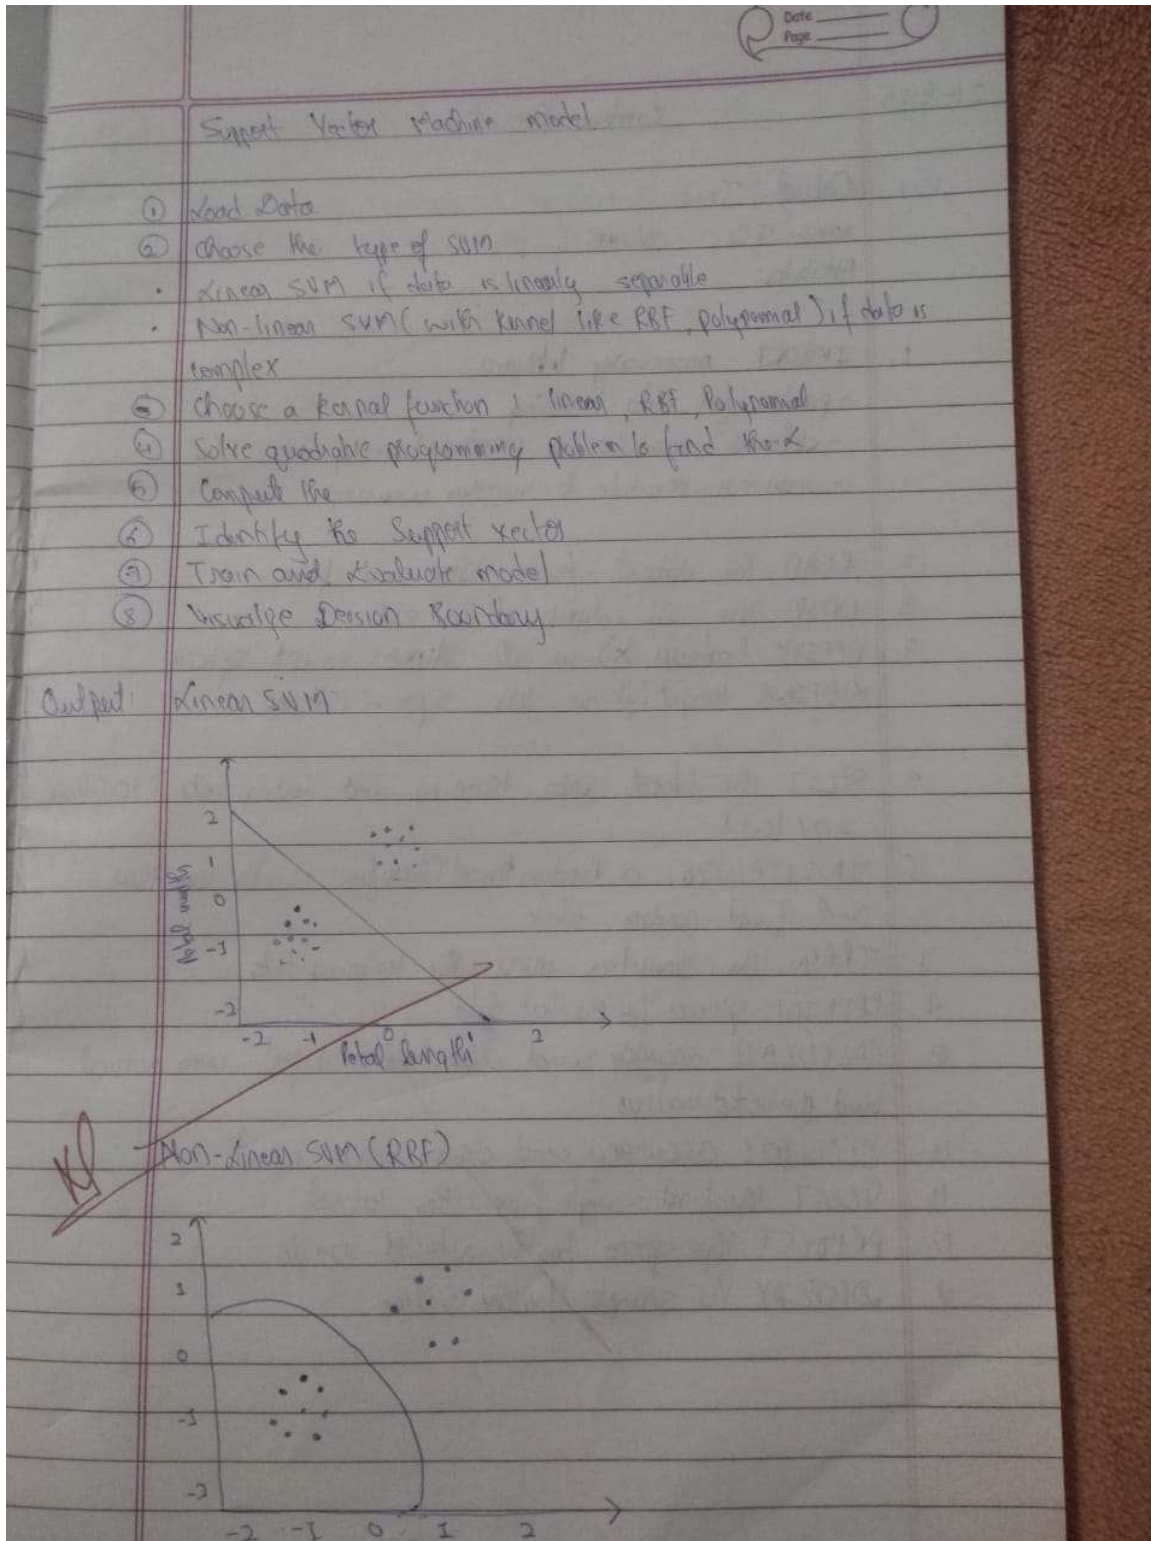 Date
Page
Support Vector Machine model
① Load Data
② choose the type of SVM
· Linear SVM if data is linearly separable
· Non-linear SVM (with kernel like RBF, polynomial) if data is
complex
③ choose a kernal function : linear, RBF, Polynomial
④ Solve quadratic programming problem to find the α
⑤ Compute the
⑥ Identify the Support vector
⑦ Train and Evaluate model
⑧ Visualize Decision Boundary
Output: Linear SVM
2
1
0
-1
-2
Petal width
-2 -1 0 1 2
Petal length
Non-Linear SVM (RBF)
2
1
0
-1
-2
-2 -1 0 1 2